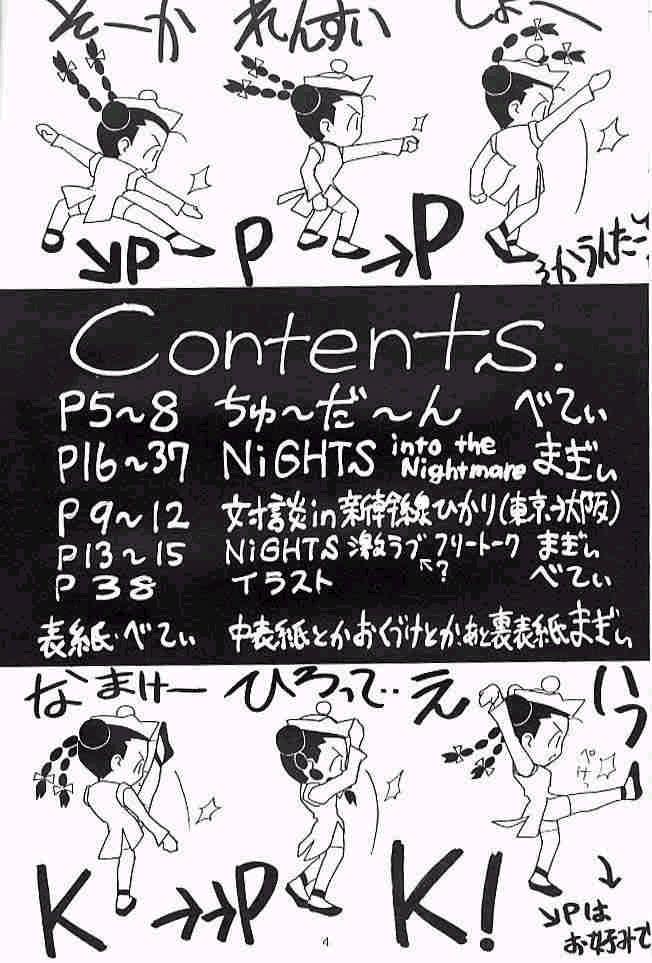 そーか れんすい しょへ
↘P P →P
ろかうんたーで
Contents.
P5~8 ちゅ~だ~ん べてい
P16~37 NiGHTS into the Nightmare まぎい
P9~12 対談in新幹線ひかり(東京→大阪)
P13~15 NiGHTS 激ラブフリートーク まぎい
↖?
P38 イラスト べてい
表紙・べてい 中表紙とかおくづけとか、あと裏表紙まぎい
なまけー ひろって‥ え いっ
ぺけっ
K →→P K!
↓
↘Pは
お好みで
4